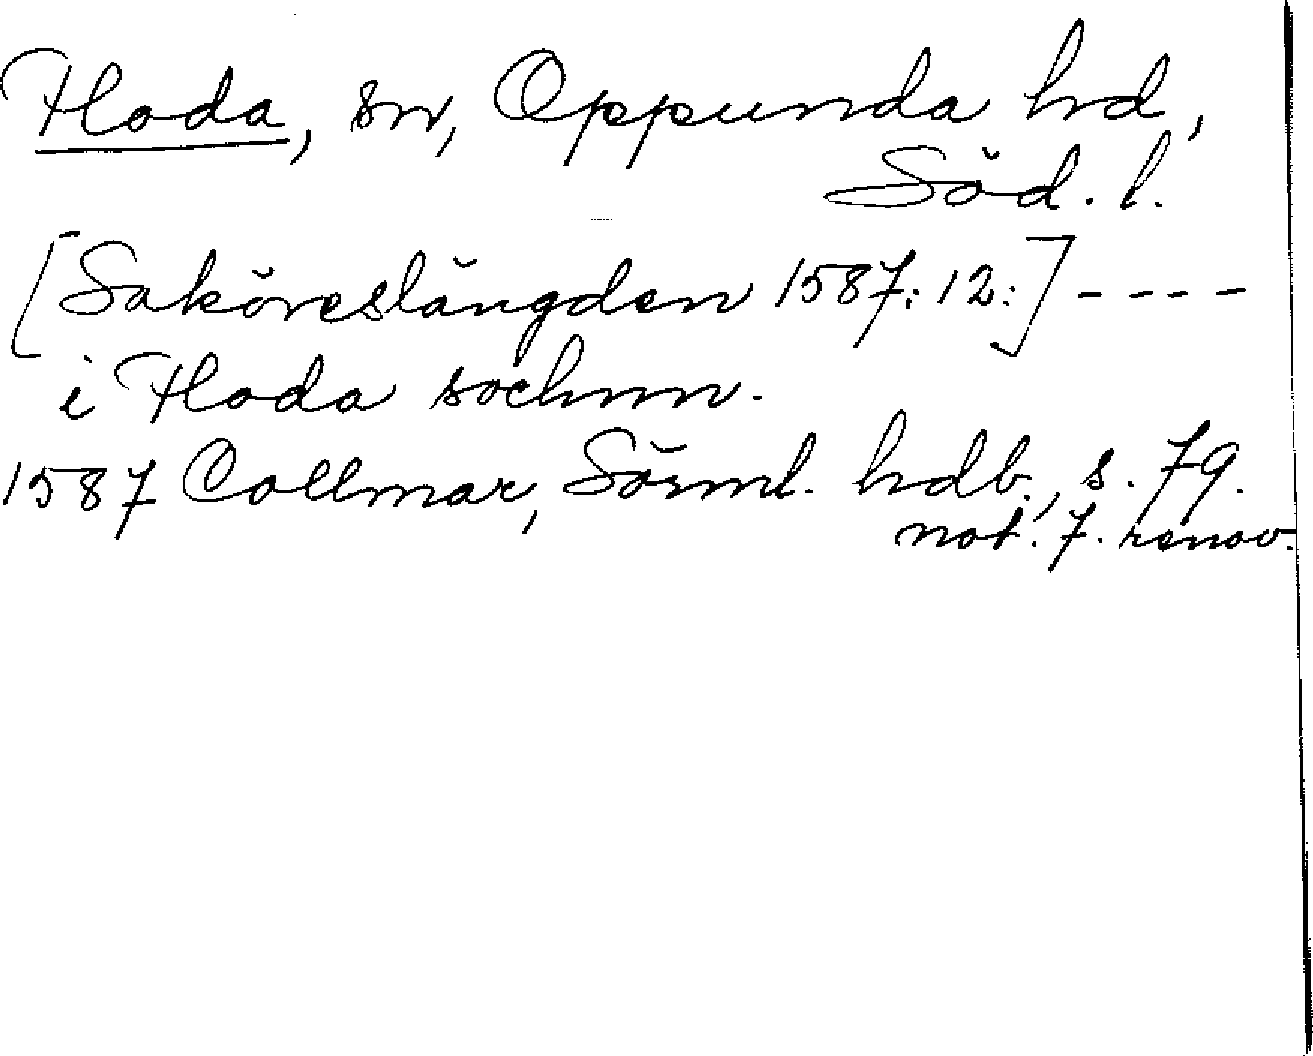 Floda, sn, Oppunda hd,
Söd. l.
[Saköreslängden 1587: 12:] - - - -
i Floda sochnn.
1587 Collmar, Sörml. hdb., s. 79.
not. 7. renov.